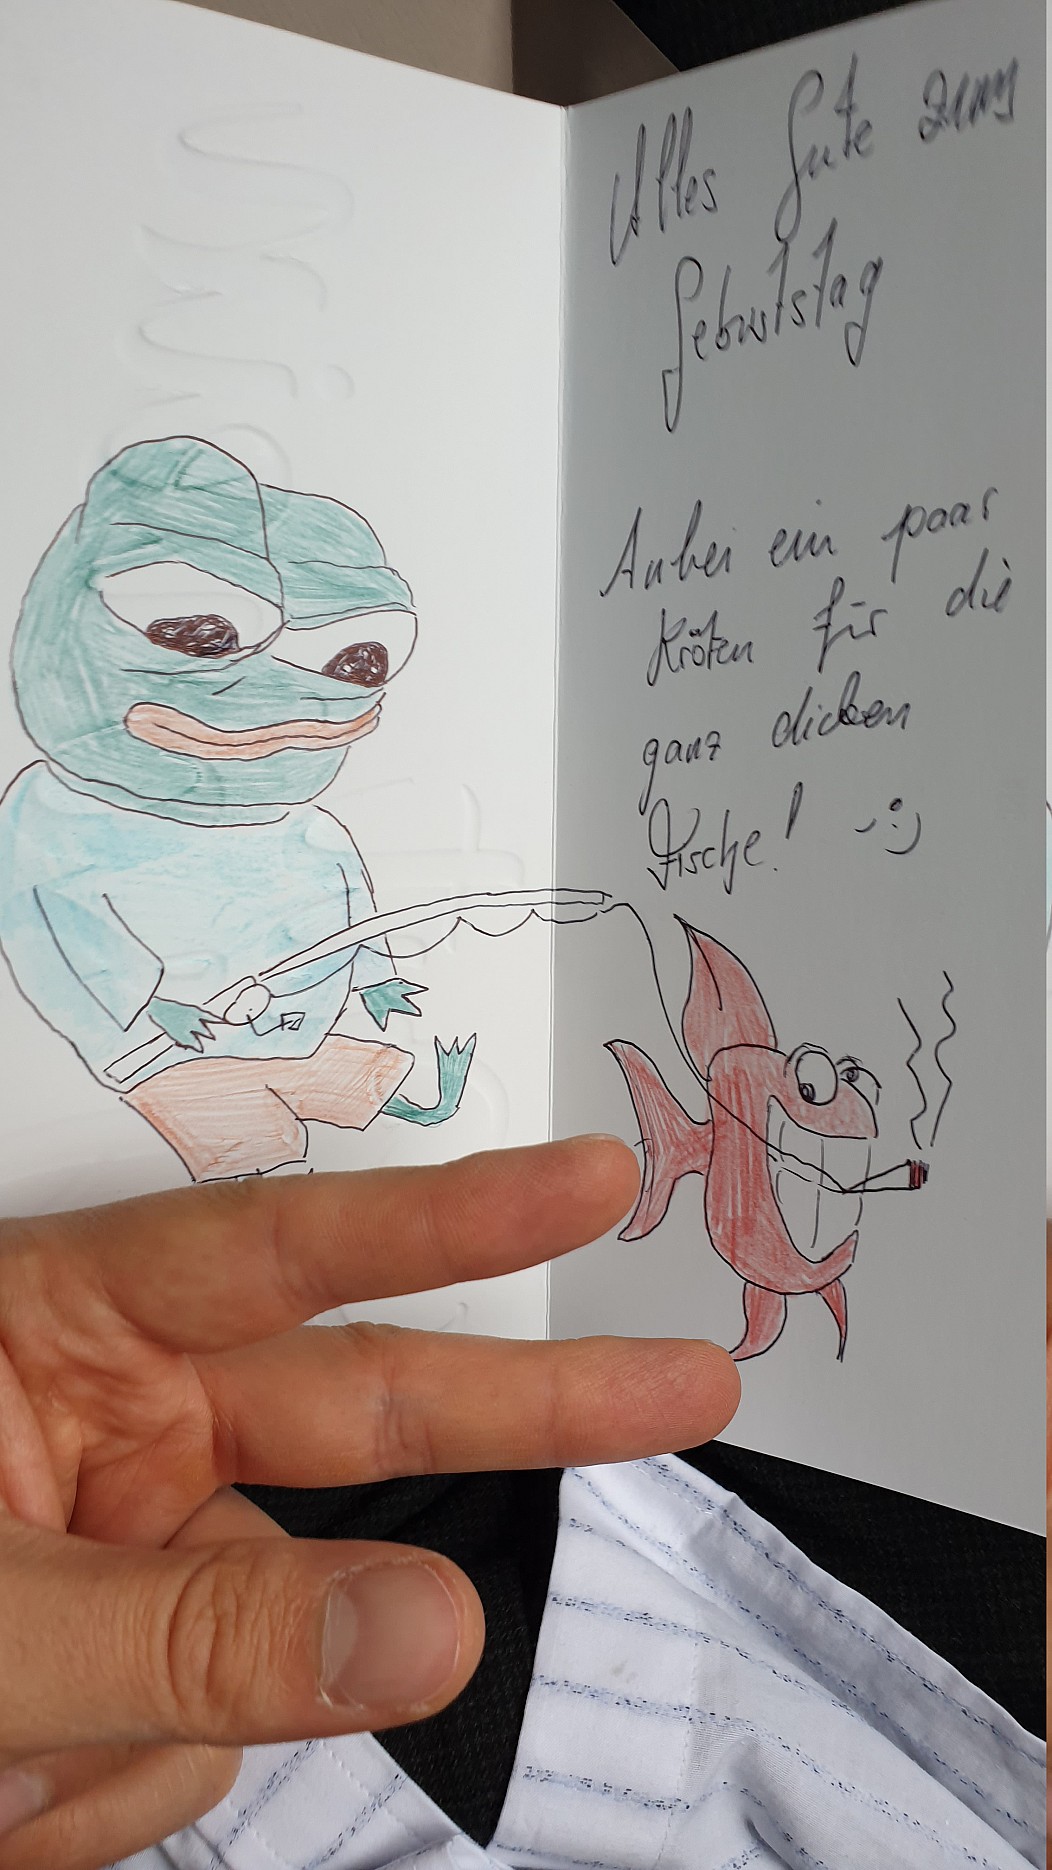 Alles Gute zum
Geburtstag
Anbei ein paar
Kröten für die
ganz dicken
Fische! :)